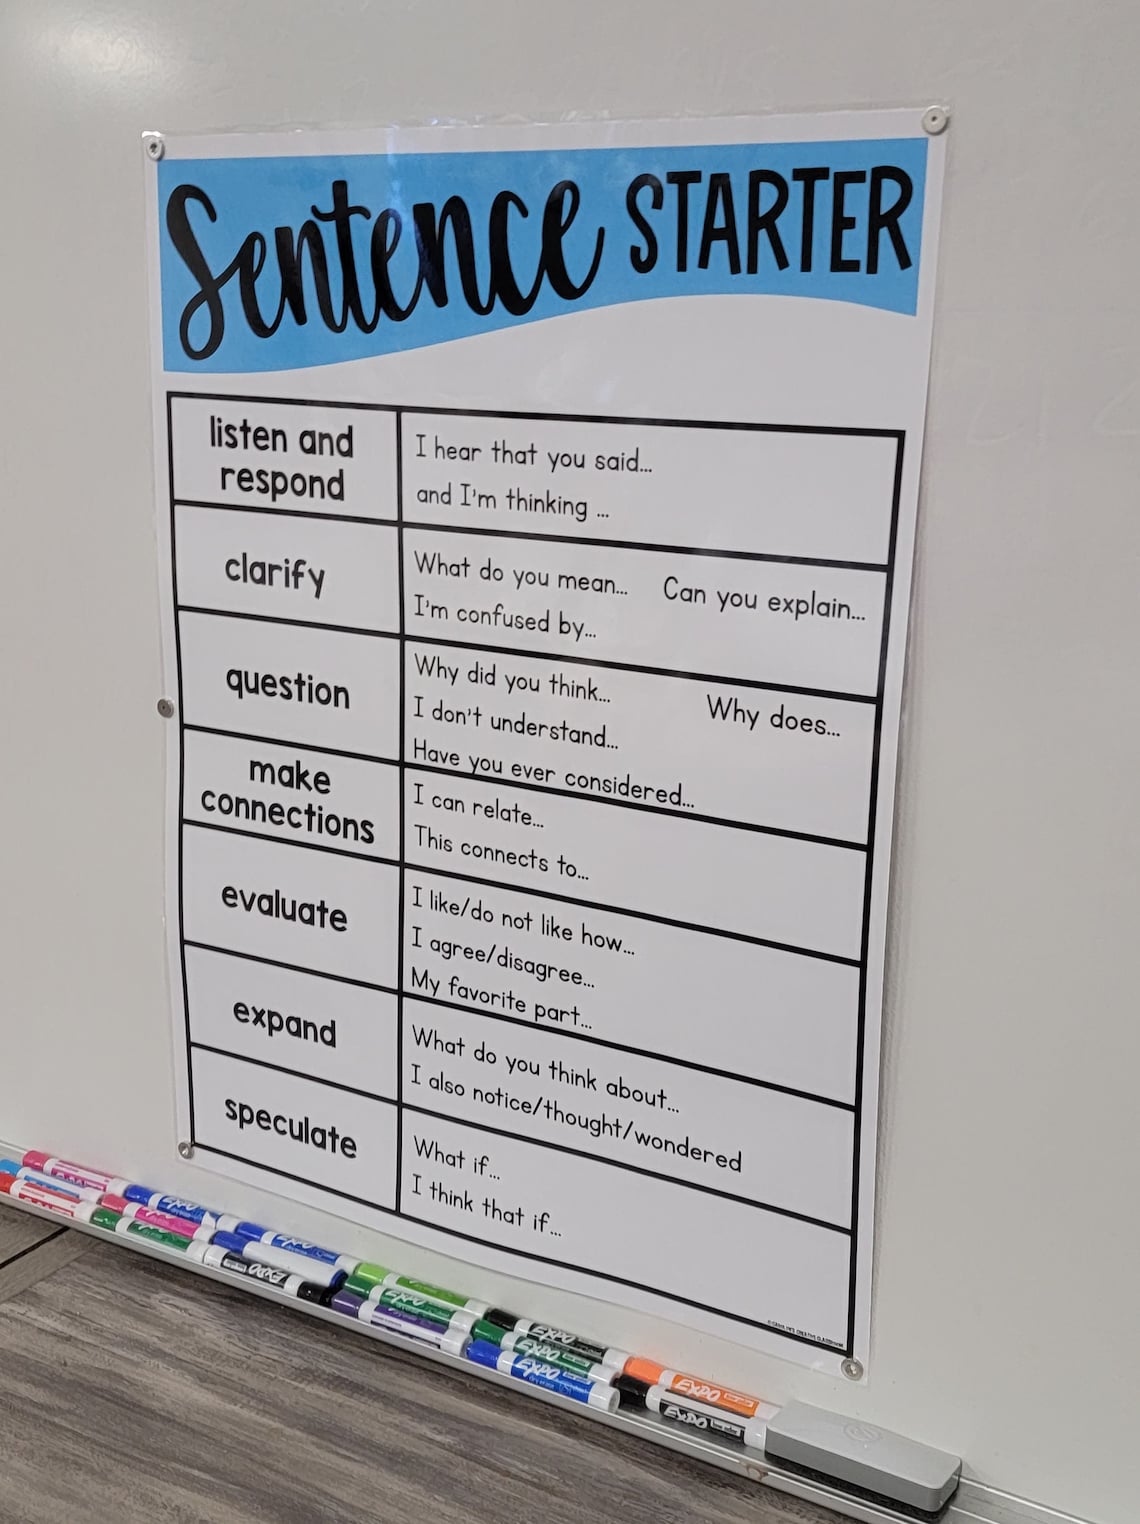 Sentence STARTER
listen and
respond
I hear that you said...
and I'm thinking ...
clarify
What do you mean... Can you explain...
I'm confused by...
question
Why did you think... Why does...
I don't understand...
Have you ever considered...
make
connections
I can relate...
This connects to...
evaluate
I like/do not like how...
I agree/disagree...
My favorite part...
expand
What do you think about...
I also notice/thought/wondered
speculate
What if...
I think that if...
EXPO
EXPO
EXPO
EXPO
EXPO
EXPO
EXPO
EXPO
EXPO